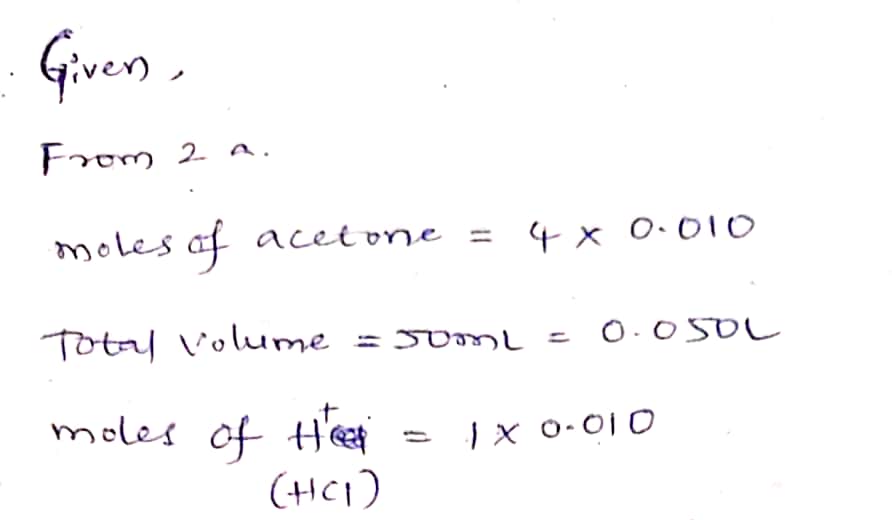 Given,
From 2 a.
moles of acetone = 4 x 0.010
Total volume = 50mL = 0.050L
moles of H+ = 1 x 0.010
(HCl)